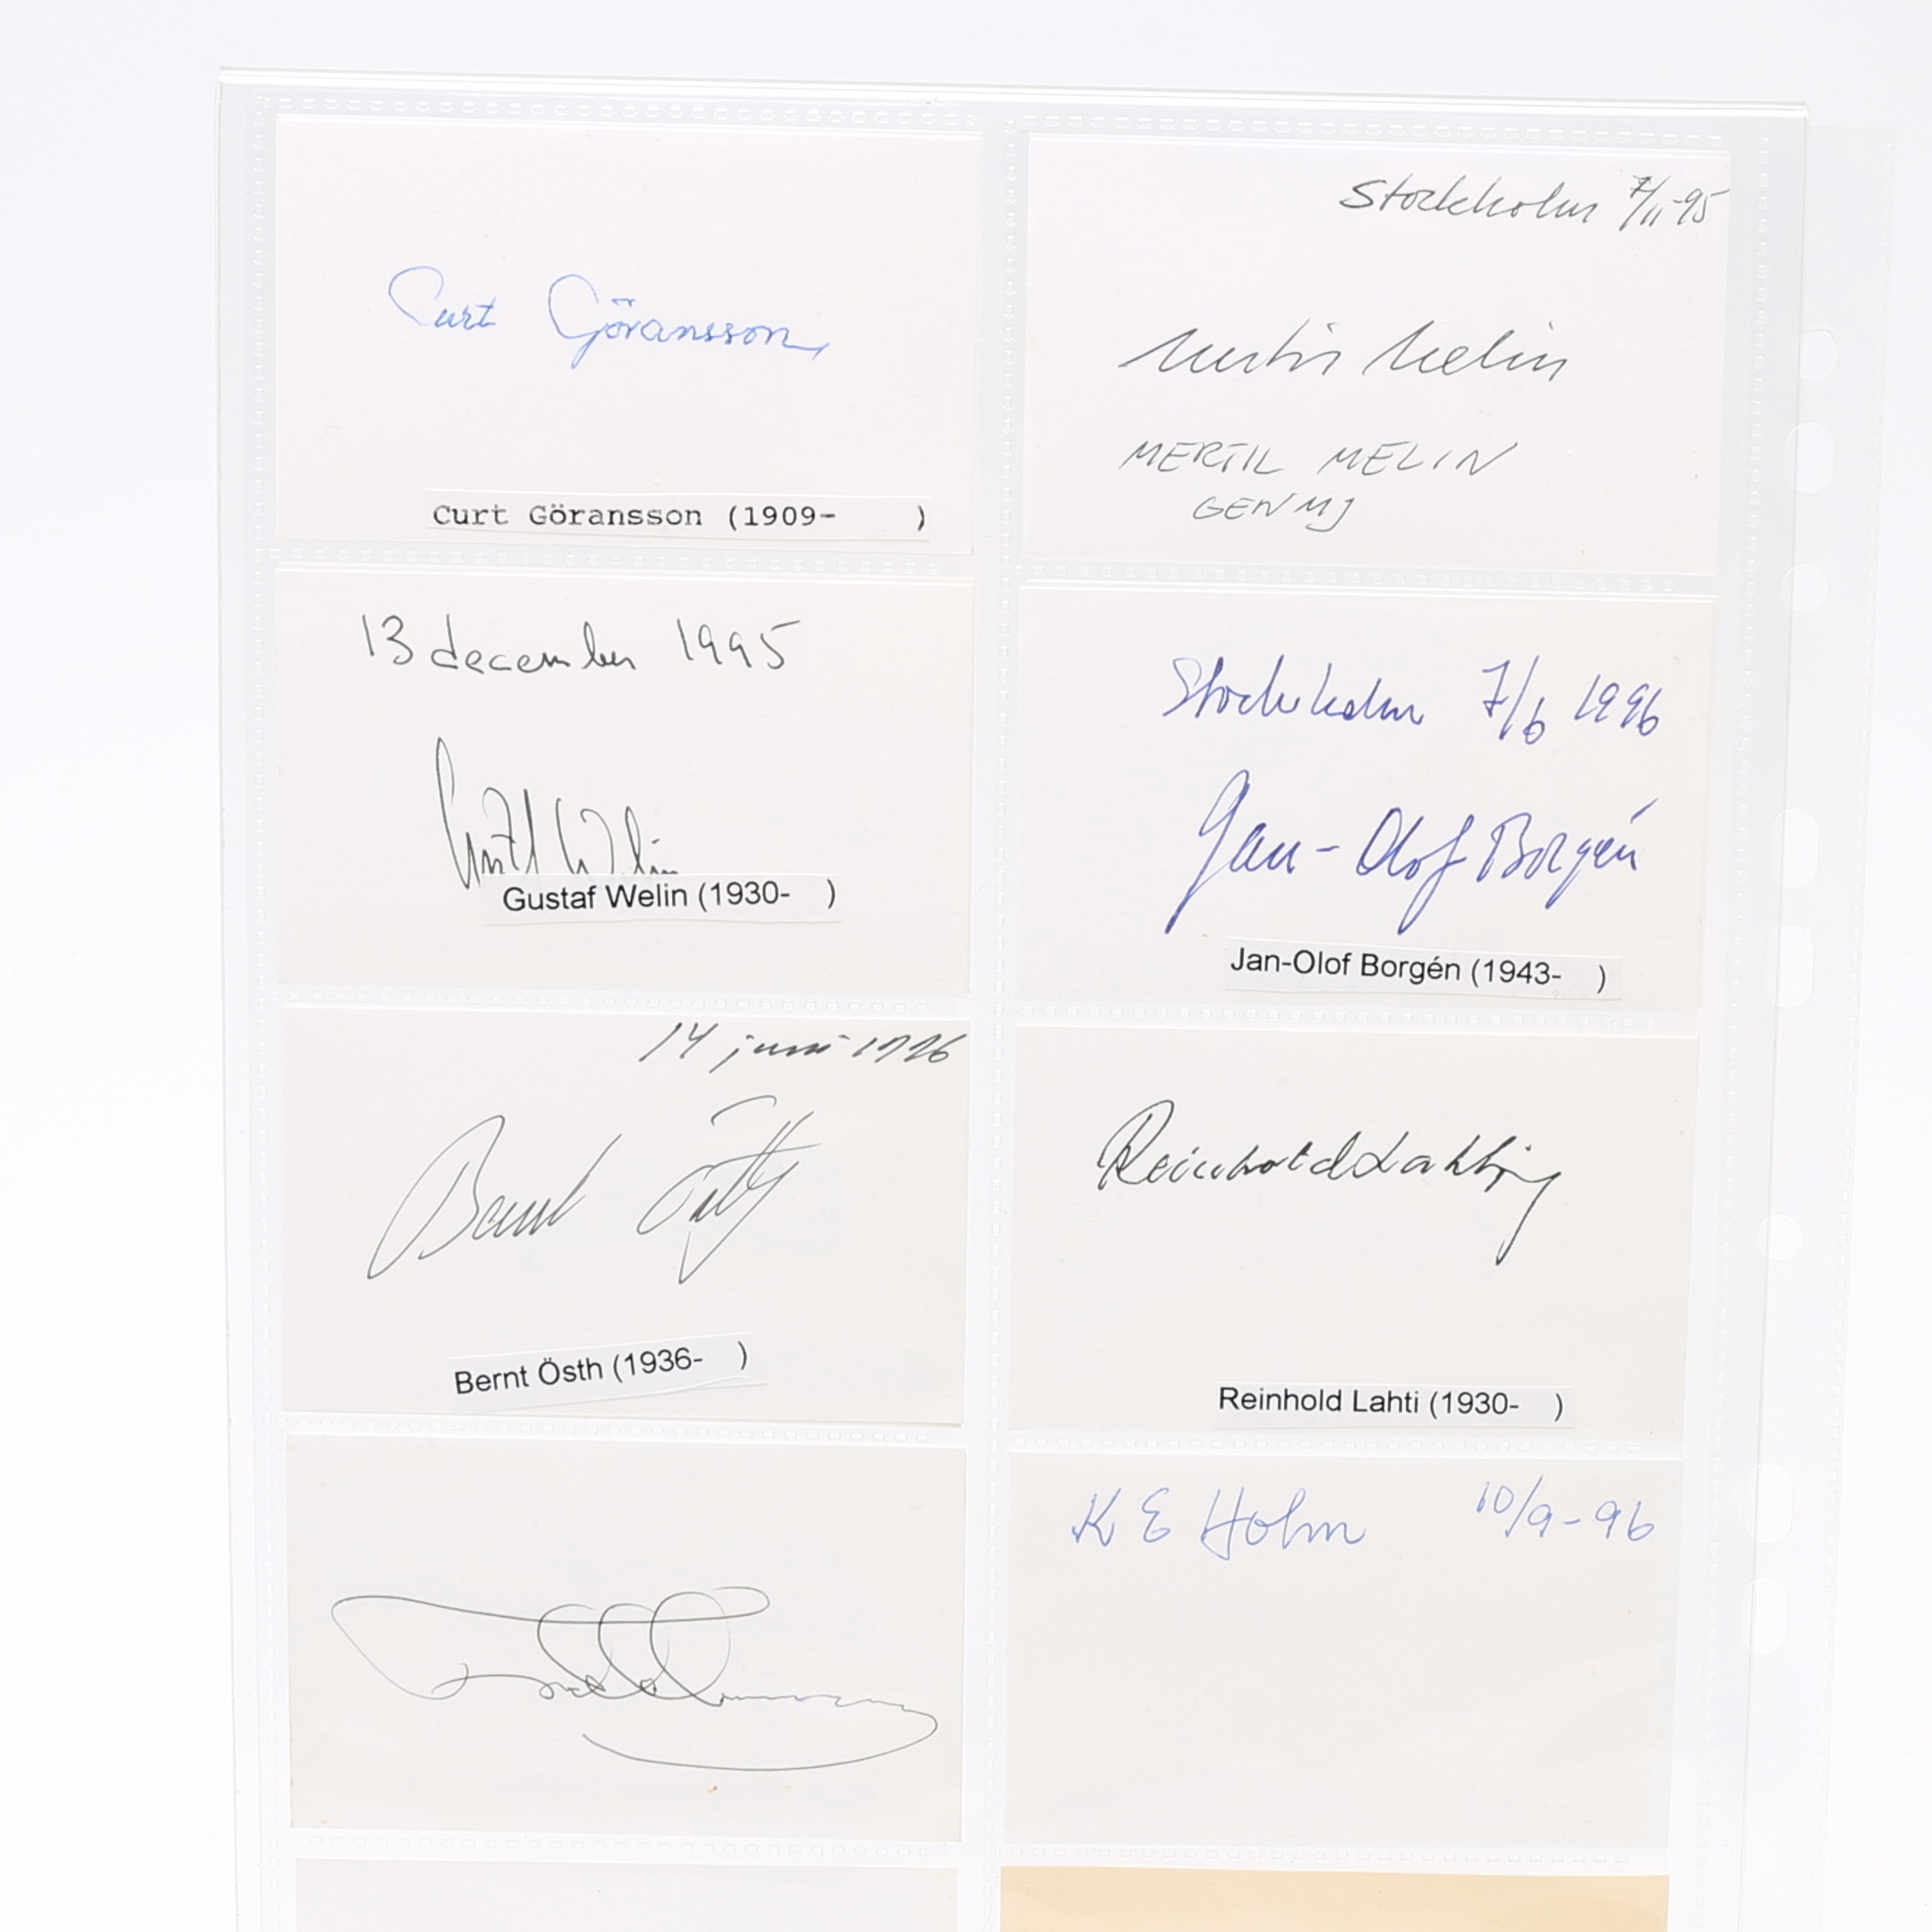 Curt Göransson
Curt Göransson (1909- )
Stockholm 7/11-95
MERTIL MELIN
GENMJ
13 december 1995
Gustaf Welin (1930- )
Stockholm 7/6 1996
Jan-Olof Borgén
Jan-Olof Borgén (1943- )
14 juni 1996
Bernt Östh
Bernt Östh (1936- )
Reinhold Lahti
Reinhold Lahti (1930- )
K E Holm 10/9-96